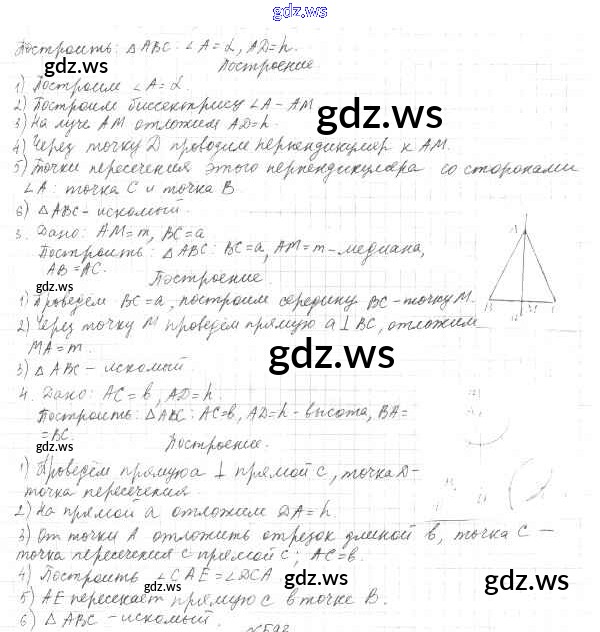 gdz.ws
Построить: △ABC: ∠A=α, AD=h.
gdz.ws
Построение
1) Построим ∠A=α.
2) Построим биссектрису ∠A - AM
gdz.ws
3) На луче AM отложим AD=h.
4) Через точку D проводим перпендикуляр к AM.
5) Точки пересечения этого перпендикуляра со сторонами
∠A: точка C и точка B.
6) △ABC - искомый.
gdz.ws
3. Дано: AM=m, BC=a
Построить: △ABC: BC=a, AM=m - медиана,
gdz.ws
AB=AC.
Построение.
1) Проведём BC=a, построим середину BC - точку M.
2) Через точку M проведём прямую a ⊥ BC, отложим
MA=m.
gdz.ws
3) △ABC - искомый
4. Дано: AC=b, AD=h.
Построить: △ABC: AC=b, AD=h - высота, BA=
=BC.
gdz.ws
Построение.
1) Проведём прямую a ⊥ прямой c, точка D-
точка пересечения.
2) На прямой a отложим DA=h.
gdz.ws
3) От точки A отложить отрезок длиной b, точка C -
точка пересечения с прямой c; AC=b.
4) Построить ∠CAE=∠DCA
gdz.ws
gdz.ws
5) AE пересекает прямую c в точке B.
6) △ABC - искомый.
№592